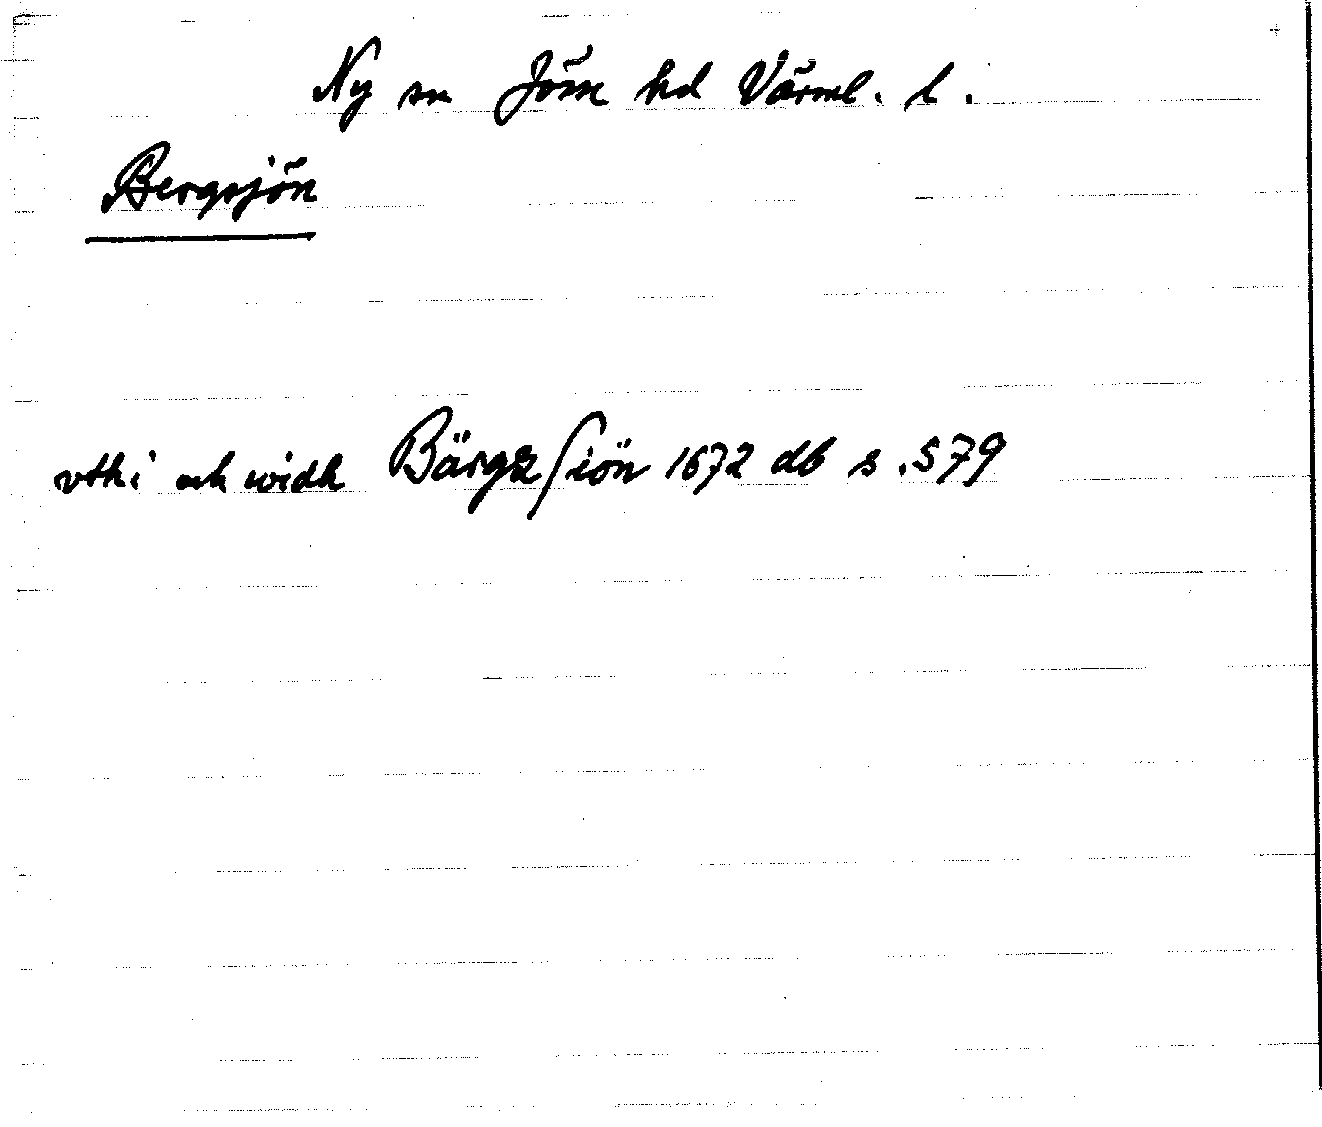 Ny sn Jöss hd Värml. l.
Bergsjön
vthi och widh Bärgzſiön 1672 db s. 579